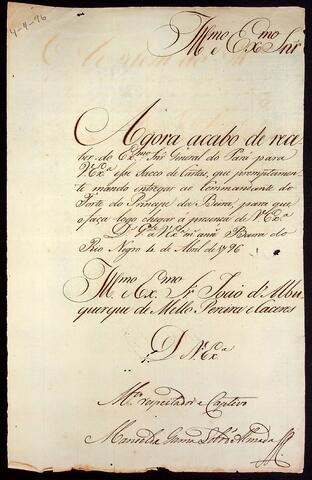 4-4-96
Illmo e Exmo Snr
Agora acabo de rece-
ber do Exmo Snr General do Pará para
V Exa esse Sacco de Cartas, que promptamen-
te mando entregar ao Commandante do
Forte do Principe da Beira, para que
o faça logo chegar á presença de V Exa
D. Gde a V Exa ms anns Barra do
Rio Negro 4 de Abril de 1796
Illmo e Exmo Sr João d'Albu
querque de Mello Pereira e Caceres
D V Exa
Mto respeitador e Captivo
Manoel da Gama Lobo d'Almada